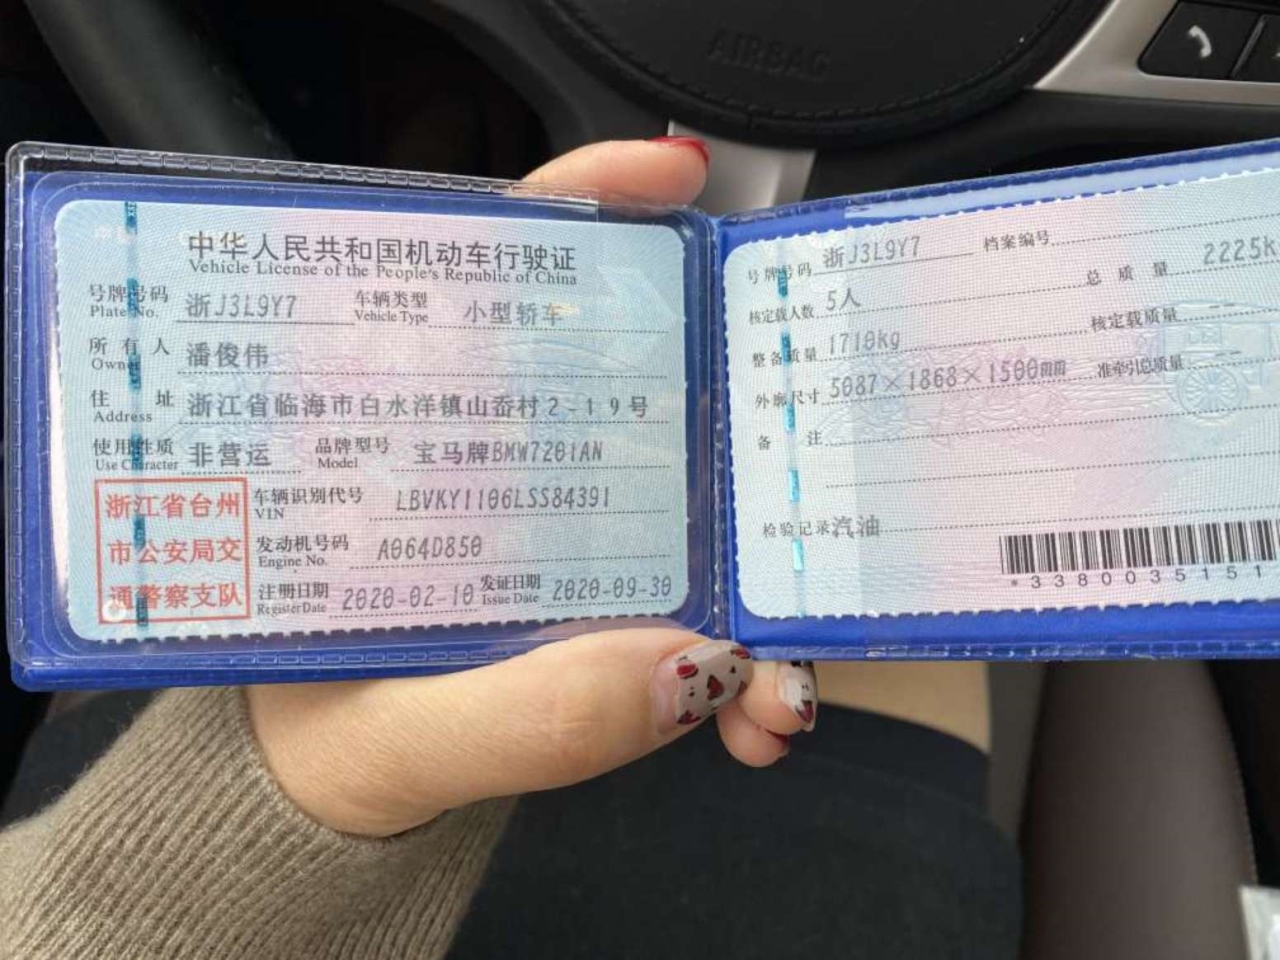 AIRBAG
中华人民共和国机动车行驶证
Vehicle License of the People's Republic of China
号牌号码 浙J3L9Y7 车辆类型 小型轿车
Plate No. Vehicle Type
所有人 潘俊伟
Owner
住址 浙江省临海市白水洋镇山岙村2-19号
Address
使用性质 非营运 品牌型号 宝马牌BMW7201AN
Use Character Model
浙江省台州
市公安局交
通警察支队
车辆识别代号 LBVKY1106LSS84391
VIN
发动机号码 A064D850
Engine No.
注册日期 2020-02-10 发证日期 2020-09-30
Register Date Issue Date
号牌号码 浙J3L9Y7 档案编号
核定载人数 5人 总质量 2225k
整备质量 1710kg 核定载质量 --
外廓尺寸 5087×1868×1500mm 准牵引总质量 --
备注
检验记录 汽油
*338003515 1